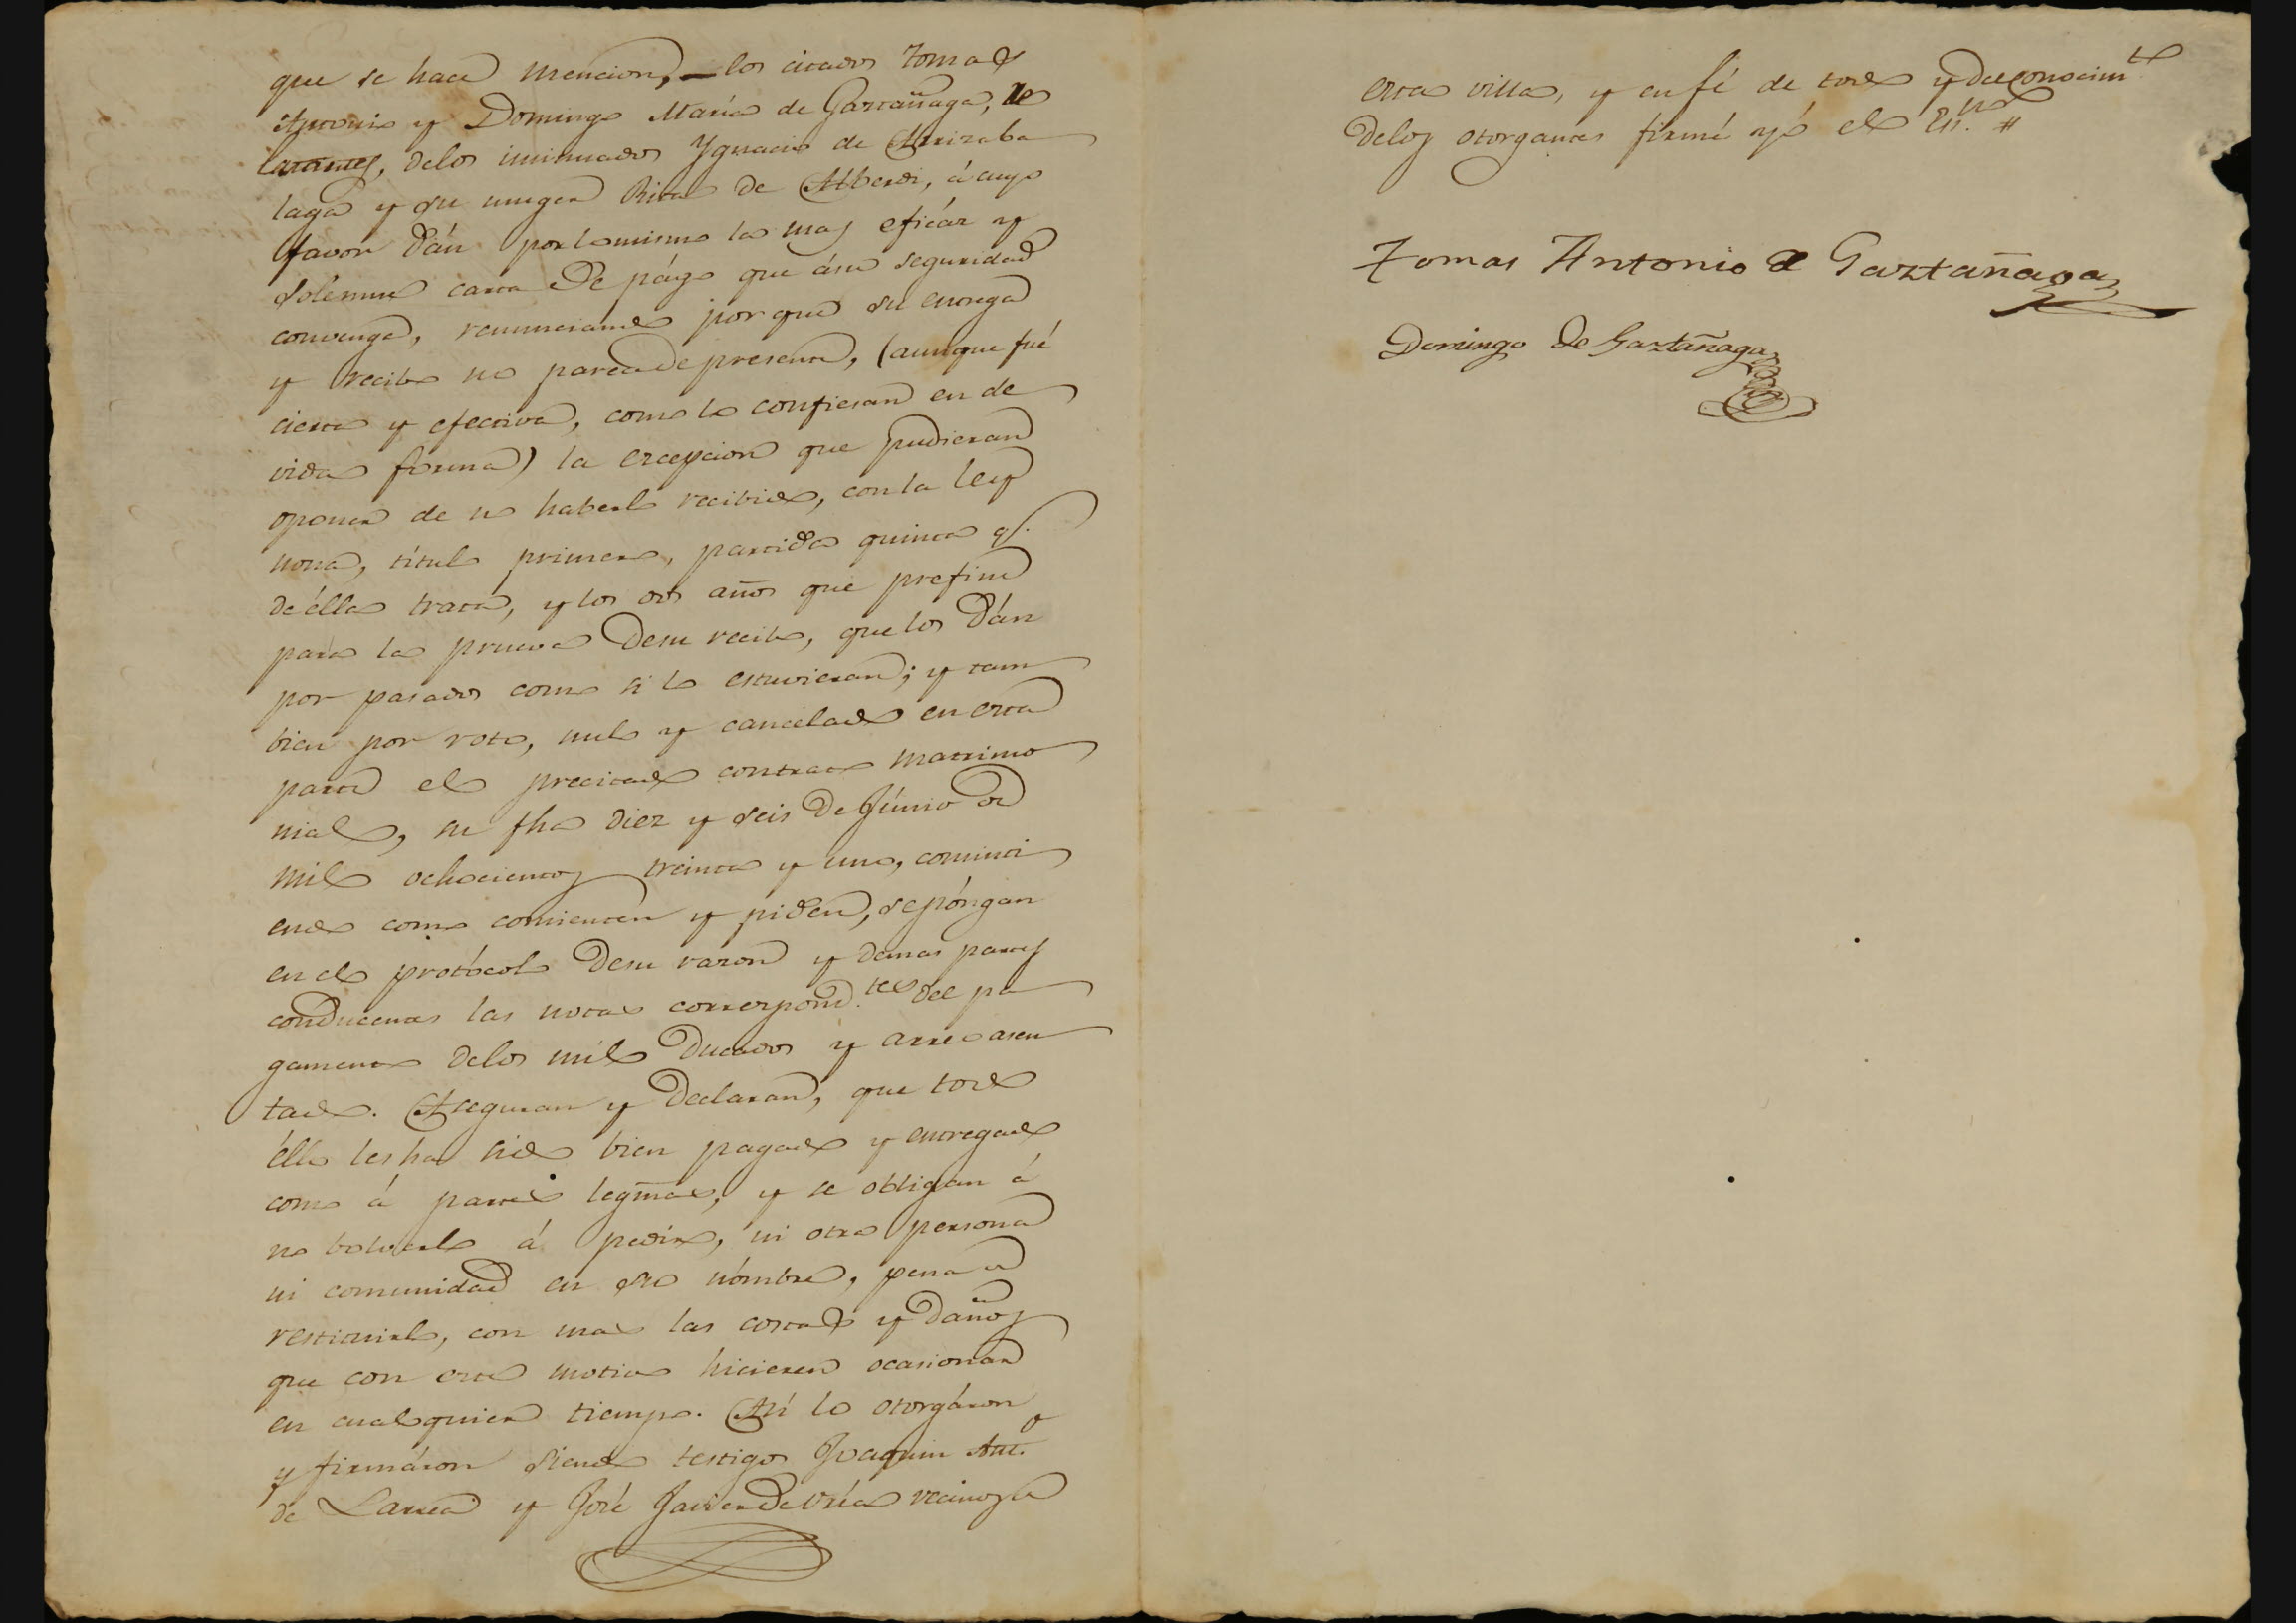 que se hace mencion, los citados Tomas
Antonio y Domingo María de Gaztañaga, 
delos insinuados Ygnacio de Arrizaba
laga y su muger Rita de Alberdi, á cuyo
favor dán por lo mismo la mas eficáz y
solemne carta de págo que á su seguridad
convenga, renunciando por que su entrega
y recibo no parece de presente, (aunque fué
cierta y efectiva, como lo confiesan en de
vida forma) la excepcion que pudieran
oponer de no haberlo recibido, con la ley
nona, título primero, partida quinta q.e
de élla trata, y los dos años que prefine
para la prueva de su recibo, que los dán
por pasados como si lo estuvieran; y tam
bien por roto, nulo y cancelado en esta
parte el precitado contrato matrimo
nial, su fha diez y seis de Júnio de
mil ochocientos treinta y uno, consinti
endo como consienten y piden, se póngan
en el protócolo de su razon y demas partes
conducentes las notas correspond.tes del pa
gamento delos mil Ducados y arreo asen
tado. Aseguran y Declaran, que todo
éllo les ha sido bien pagado y entregado
como á partes legmas, y se obligan á
no bolverlo á pedir, ni otra persona
ni comunidad en su nómbre, pena de
restituirlo, con mas las costas y daños
que con este motivo hicieren ocasionar
en cualquier tiempo. Así lo otorgáron
y firmáron siendo testigos Joaquin Ant.o
de Larrea y José Javier de Uria vecinos de
esta villa, y en fé de todo y del conocim.to
delos otorgantes firmé yó el Es.no #
Tomas Antonio de Gaztañaga
Domingo de Gaztañaga